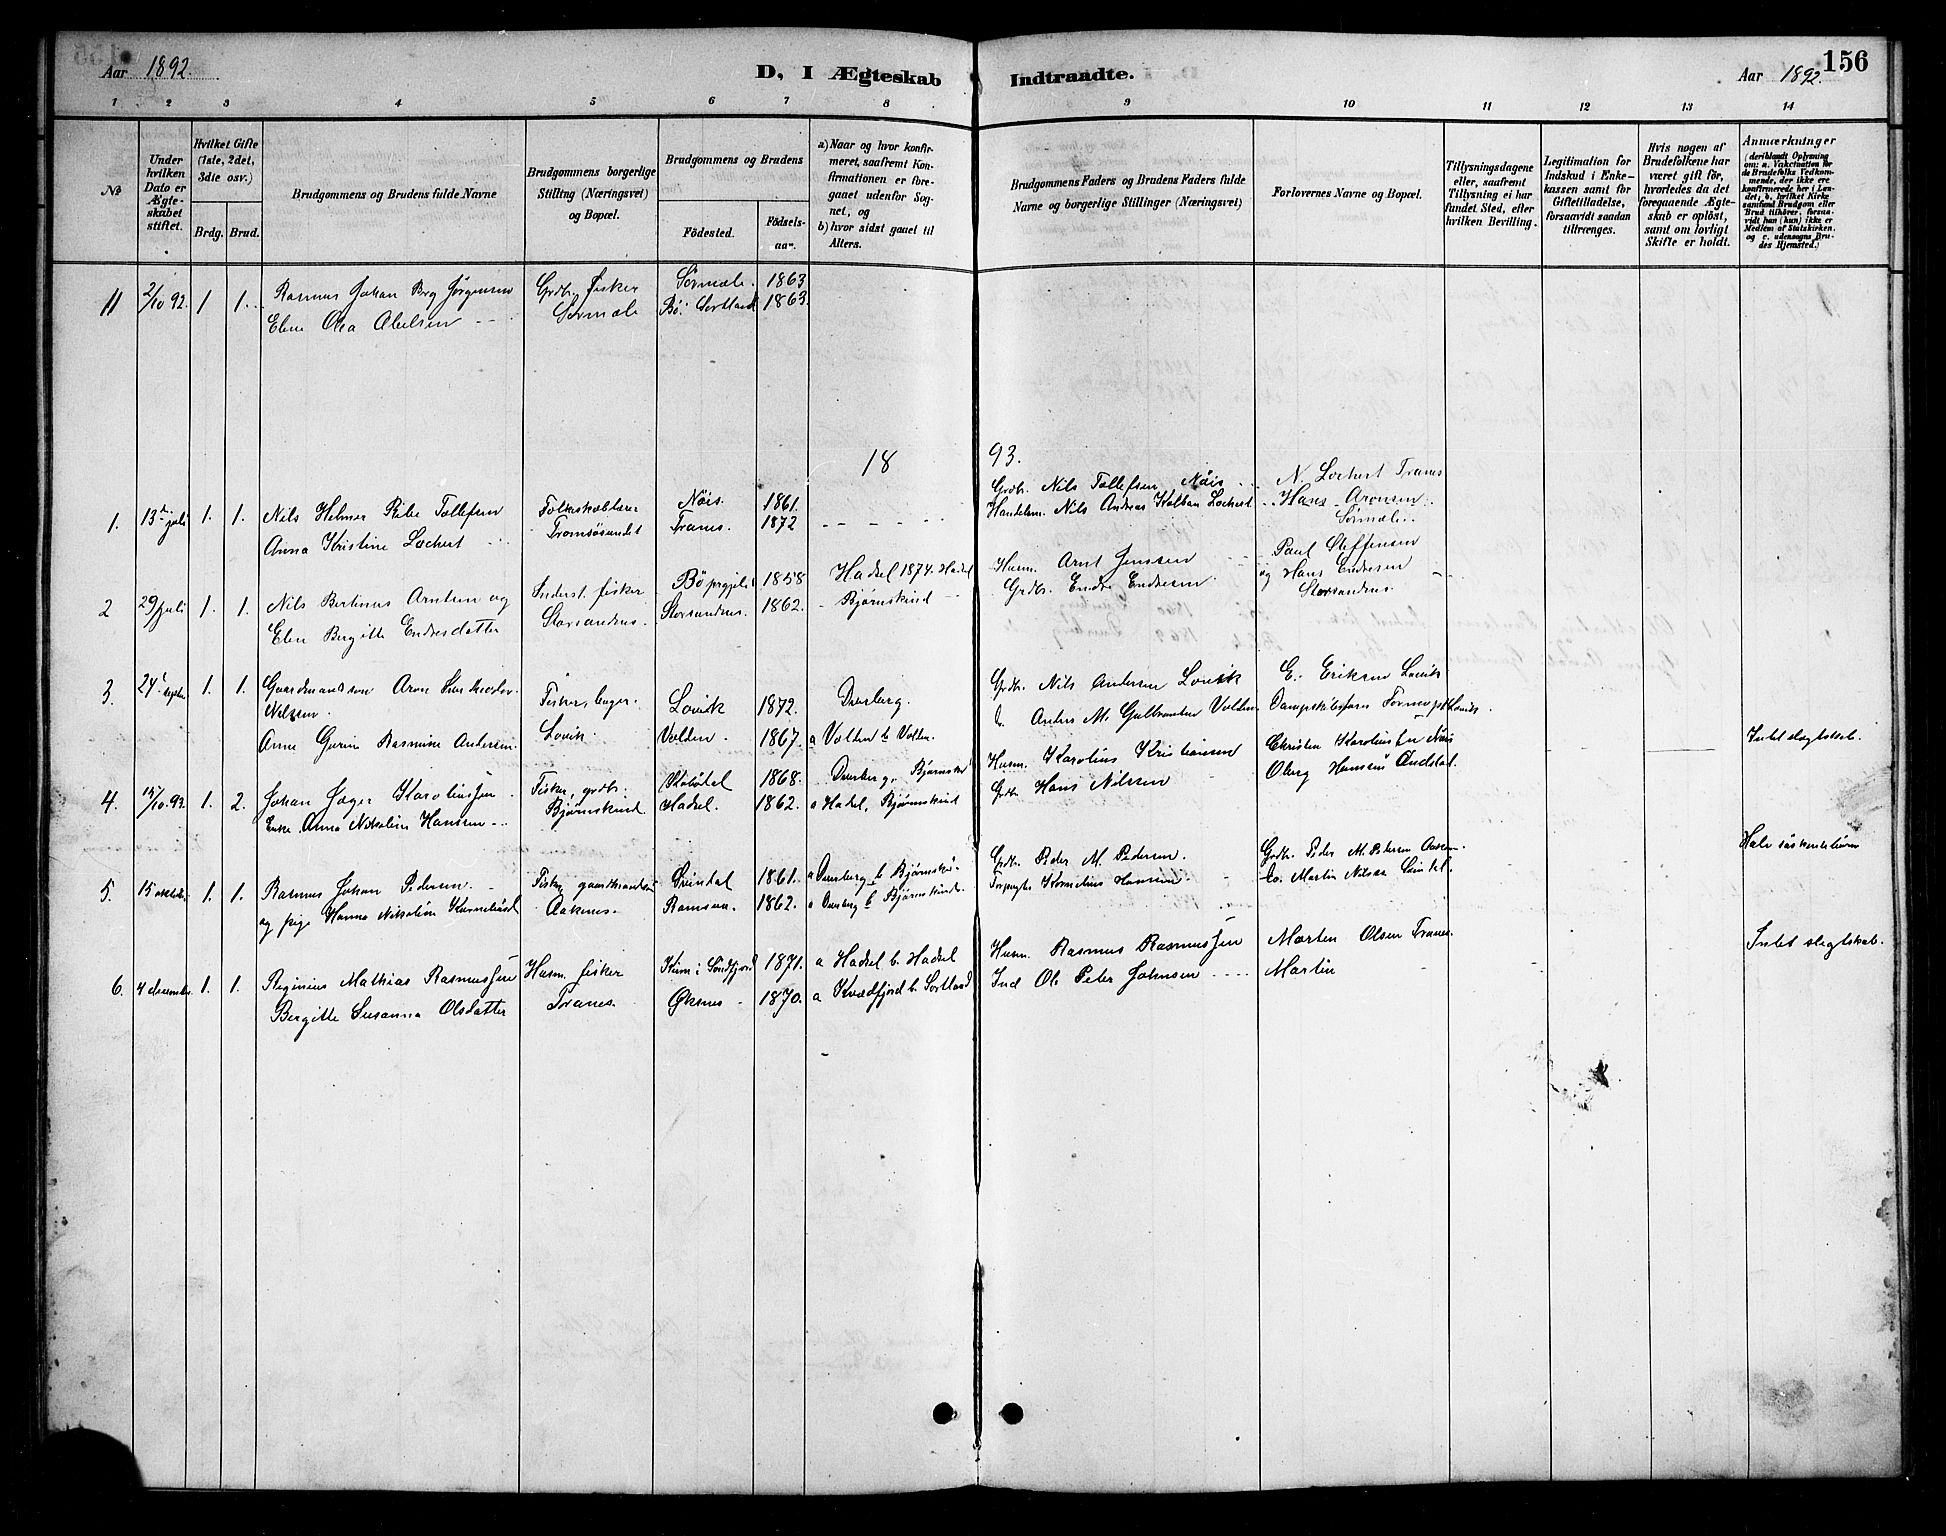 156
Aar 1892.
D, I Ægteskab Indtraadte.
Aar 1892.
1 2 3 4 5 6 7 8 9 10 11 12 13 14
No
Under hvilken Dato er Ægteskabet stiftet.
Hvilket Gifte (1ste, 2det, 3die osv.)
Brdg. Brud.
Brudgommens og Brudens fulde Navne
Brudgommens borgerlige Stilling (Næringsvei) og Bopæl.
Brudgommens og Brudens
Fødested. Fødsels-aar.
a) Naar og hvor konfirmeret, saafremt Konfirmationen er foregaaet udenfor Sognet, og
b) hvor sidst gaaet til Alters.
Brudgommens Faders og Brudens Faders fulde Navne og borgerlige Stillinger (Næringsvei)
Forlovernes Navne og Bopæl.
Tillysningsdagene eller, saafremt Tillysning ei har fundet Sted, efter hvilken Bevilling.
Legitimation for Indskud i Enkekassen samt for Giftetilladelse, forsaavidt saadan tiltrænges.
Hvis nogen af Brudefolkene har været gift før, hvorledes da det foregaaende Ægteskab er opløst, samt om lovligt Skifte er holdt.
Anmærkninger
(deriblandt Oplysning om: a. Vakcination for de Brudefolks Vedkommende, der ikke ere konfirmerede her i Landet; b. hvilket Kirkesamfund Brudgom eller Brud tilhører, forsaavidt han (hun) ikke er Medlem af Statskirken, og c. udensogns Brudes Hjemsted.)
11 2/10 92. 1 1. Rasmus Johan Berg Jørgensen Grdbr. fisker Sørmæle. 1863
Elen Olea Abelsen Sørmæle Bø i Sortland 1863.
18 93.
1. 13de juli 1. 1. Nils Helmer Ribe Tollefsen Folkeskolelærer Nøis. 1861. Grdb. Nils Tollefsen Nøis N. Lockert Tranes
Anna Kristine Lockert Tromsøsundet Tranes. 1872 Handelsm. Nils Andreas Kolban Lockert Hans Aronsen Sørmæle.
2 29 juli 1. 1. Nils Bertinus Arntsen og Inderst. fisker Bø prgjeld 1858 Hadsel 1874. Hadsel Husm. Arnt Jenssen Paul Steffensen
Elen Bergitte Endresdatter Storsandnes. Storsandnes. 1862. Bjørnskind Grdbr. Endre Endresen og Hans Endresen Storsandnes
3. 24 septbr 1. 1. Gaardmandssøn Aron
Nilssen. Fisker, Lovik 1872. Dverberg. Grdb. Nils Andersen Lovik E. Eriksen Lovik
Anne Rasmine Andersen. Lovik. Volden. 1867. a Volden b Volden. Anders M. Gulbrandsen Volden
4. 15/10.93. 1. 2. Johan Jæger Karoliussen Fisker, grdbr. 1868. Dverberg, Bjørnsk. Husm. Karolius Kristiansen Christen Karoliussen Nøis Intet slægtskab.
Enke Anna Nikoline Hansen Bjørnskind Hadsel. 1862. a Hadsel, Bjørnskind Grdb. Hans Nilssen Hanssen
5. 15 oktober 1. 1. Rasmus Johan Pedersen Fisker, gaardmandssøn 1861. a Dverberg b Bjørnsk. Grdbr. Peder M. Pedersen. Grdb. Peder M. Petersen Aasen
og pige Hanna Nikoline Aaknes. Ramsaa. 1862. a Dverberg b Bjørnskind. Kornelius Hansen Do. Martin Nilssen
6. 4 december 1. 1. Reginius Mathias Rasmussen Husm. fisker Kinn i Søndfjord 1871. a Hadsel b. Hadsel Husm. Rasmus Rasmussen Morten Olsen Tranes. Intet slegtskab.
Bergitte Susanna Olsdatter Tranes Øksnes 1870. a Kvædfjord b. Sortland Ind Ole Peter Johnsen Martin